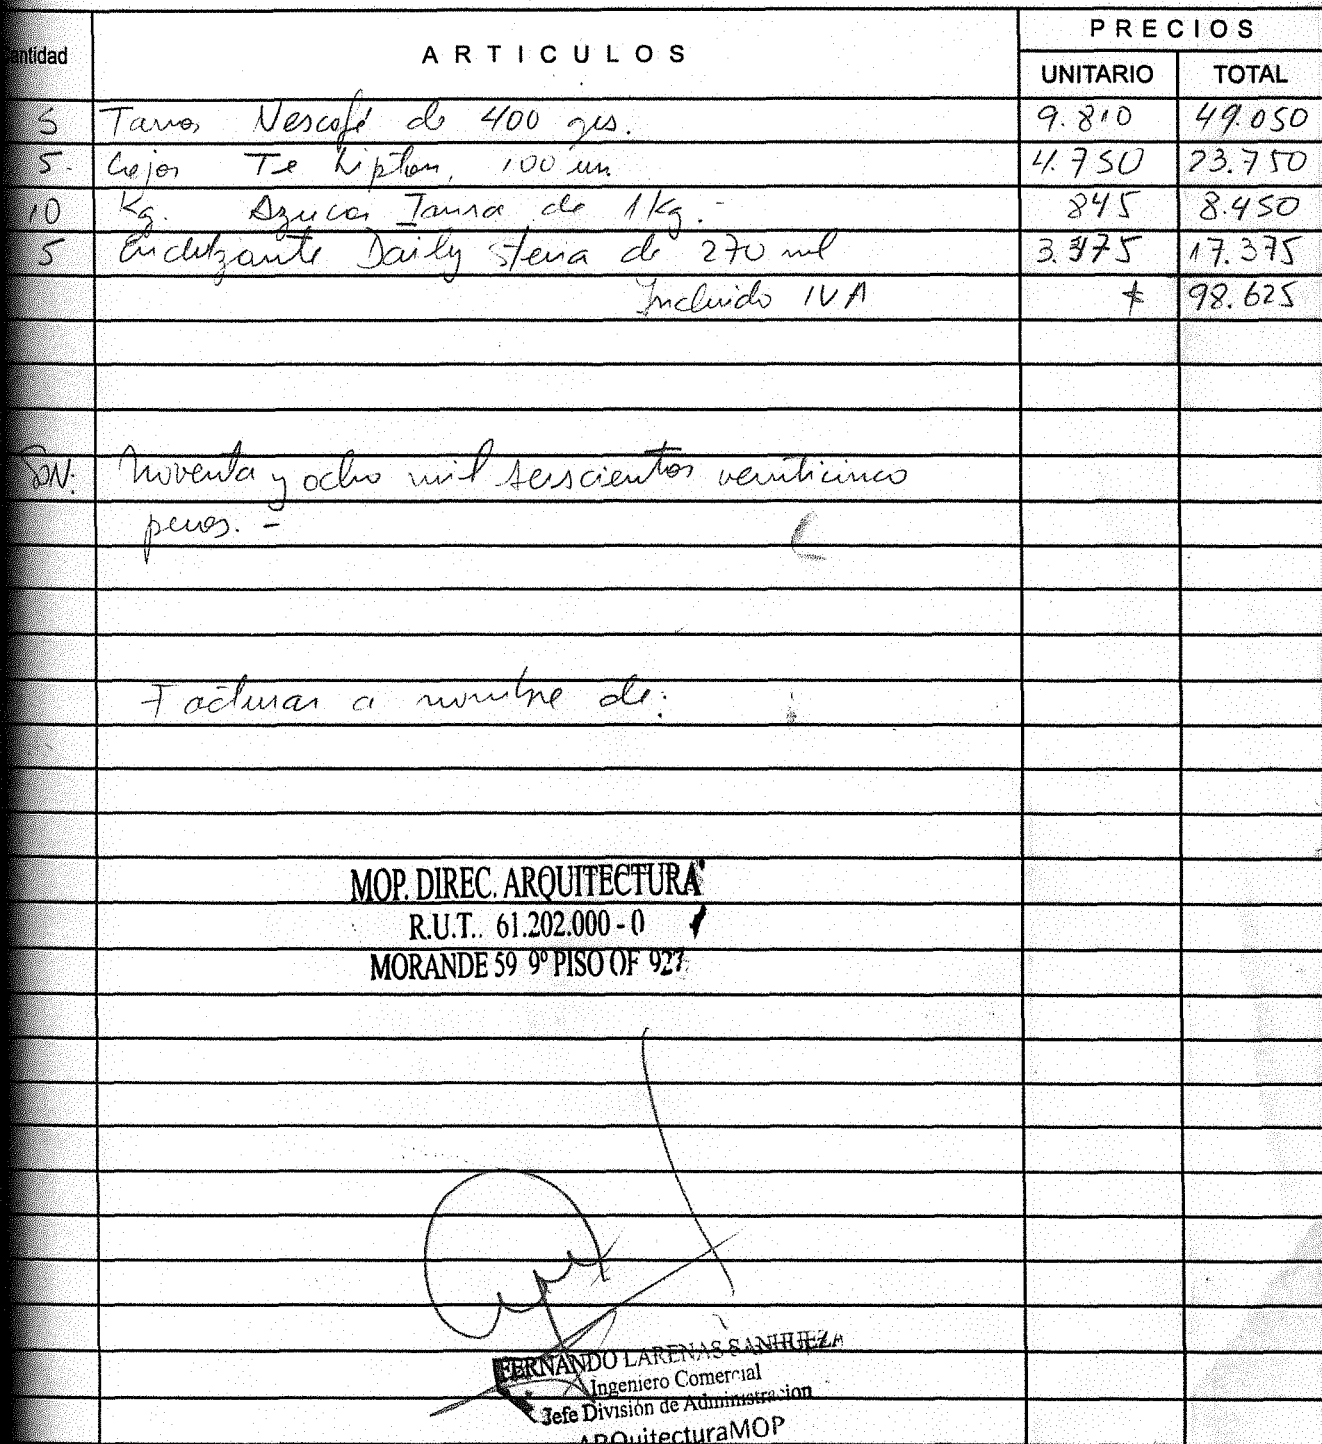 PRECIOS
antidad ARTICULOS UNITARIO TOTAL
5 Tarros Nescafé de 400 grs. 9.810 49.050
5. Cajas Te Lipton, 100 un 4.750 23.750
10 Kg. Azucar Iansa de 1 Kg.- 845 8.450
5 Endulzante Daily Stevia de 270 ml 3.475 17.375
Incluido IVA 98.625
SON: Noventa y ocho mil seiscientos veinticinco
pesos. -
Facturar a nombre de:
MOP. DIREC. ARQUITECTURA
R.U.T.. 61.202.000 - 0
MORANDE 59 9º PISO OF 927
FERNANDO LARENAS SANHUEZA
Ingeniero Comercial
Jefe División de Administracion
ARQuitecturaMOP